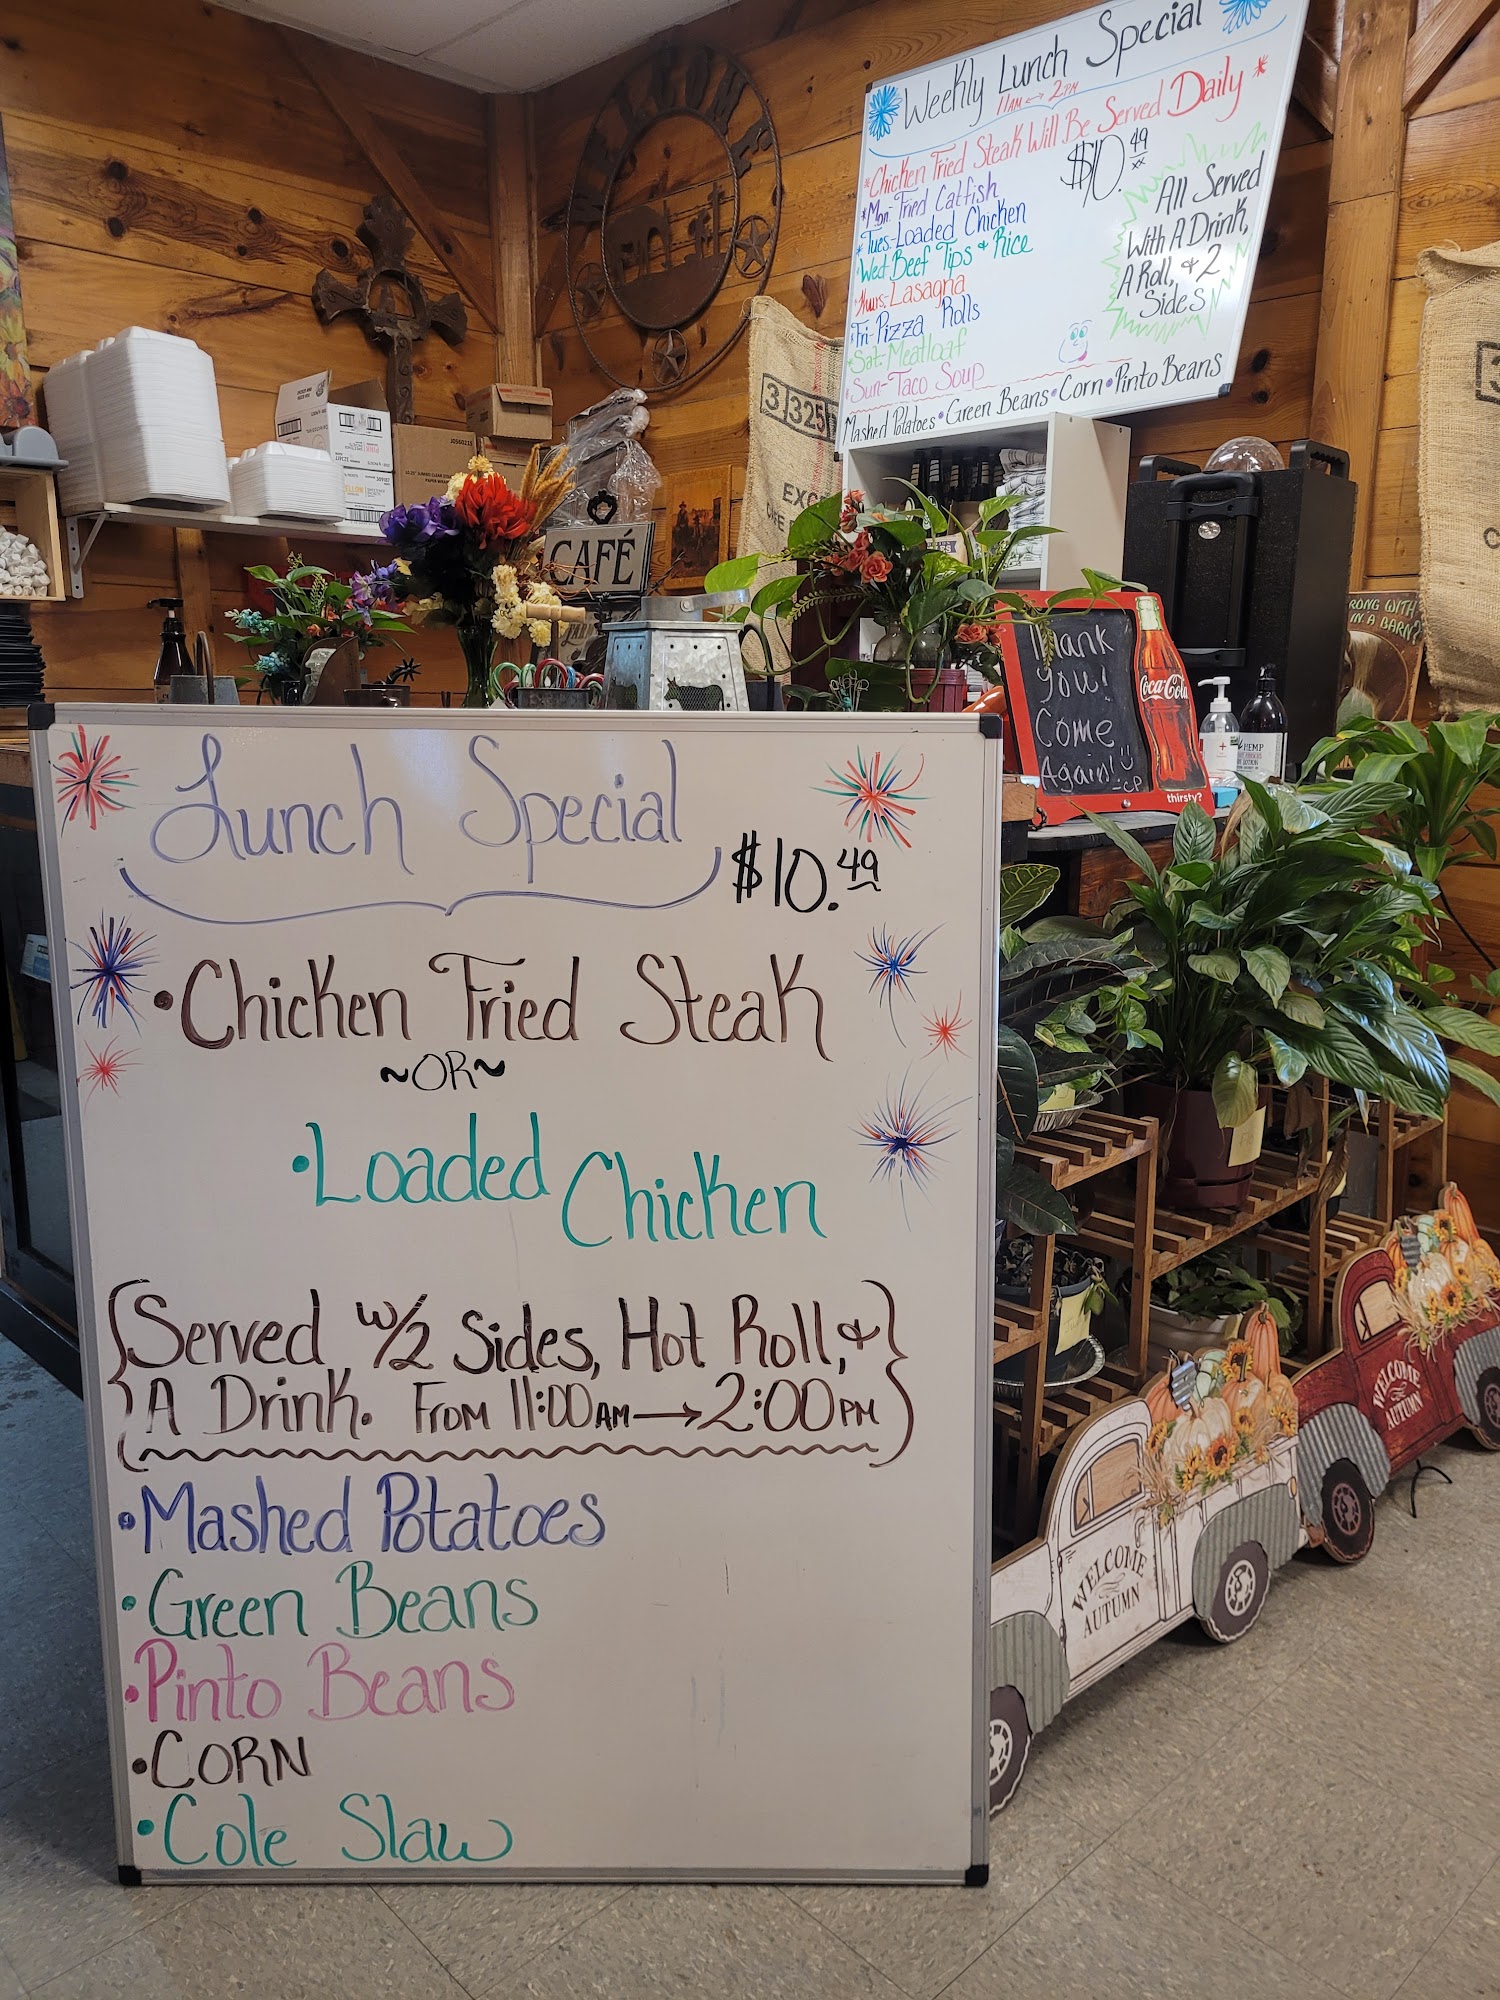 WELCOME
Weekly Lunch Special
11AM ↔ 2PM
*Chicken Fried Steak Will Be Served Daily*
$10.49
xx
*Mon: Fried Catfish
*Tues-Loaded Chicken
*Wed: Beef Tips & Rice
*Thurs: Lasagna
*Fri-Pizza Rolls
*Sat: Meatloaf
*Sun-Taco Soup
All Served
With A Drink,
A Roll, & 2
Sides
Mashed Potatoes • Green Beans • Corn • Pinto Beans
3
325
EXC
CAFÉ
Thank
You!
Come
Again!
-CP
Coca-Cola
thirsty?
HEMP
IN A BARN?
Lunch Special
$10.49
•Chicken Fried Steak
~OR~
•Loaded Chicken
Served w/2 Sides, Hot Roll, &
A Drink. From 11:00AM → 2:00PM
•Mashed Potatoes
•Green Beans
•Pinto Beans
•CORN
•Cole Slaw
WELCOME
AUTUMN
WELCOME
AUTUMN